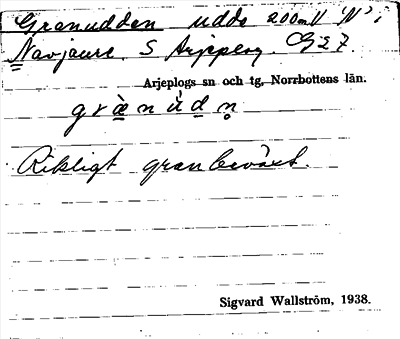 Granudden udde 200m V N i
Navjaure. S Arjeplog. G27.
Arjeplogs sn och tg, Norrbottens län.
græ̀nu̇́dn̥
Rikligt granbeväxt.
Sigvard Wallström, 1938.